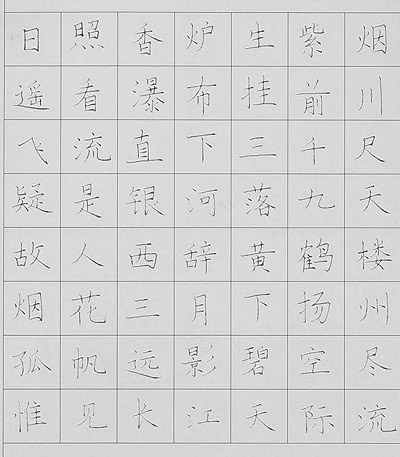 日照香炉生紫烟
遥看瀑布挂前川
飞流直下三千尺
疑是银河落九天
故人西辞黄鹤楼
烟花三月下扬州
孤帆远影碧空尽
惟见长江天际流